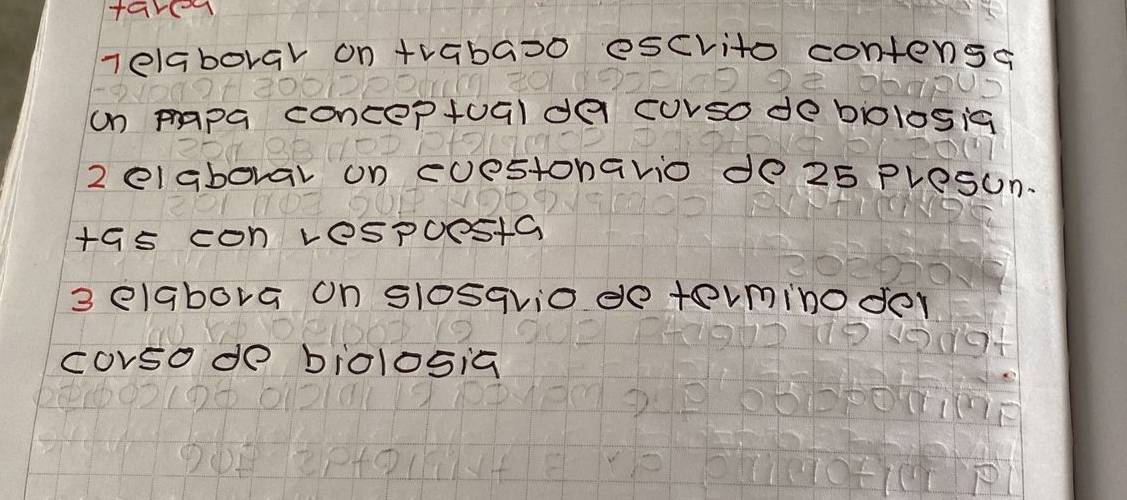 tarea
1 elaborar un trabajo escrito contenga
un mapa conceptual del curso de biologia
2 elaborar un cuestonario de 25 pregun-
tas con respuesta
3 elabora un glosario de termino del
curso de biologia